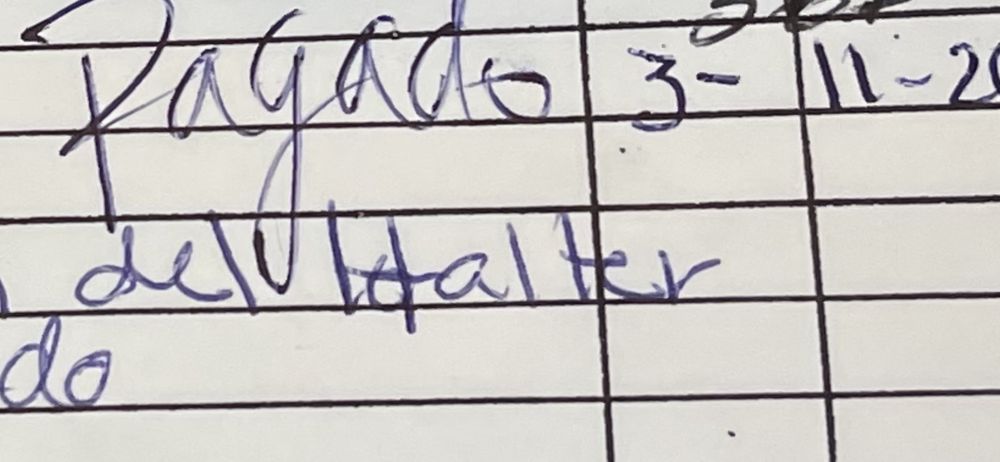 Pagado 3- 11-2
del Halter
do